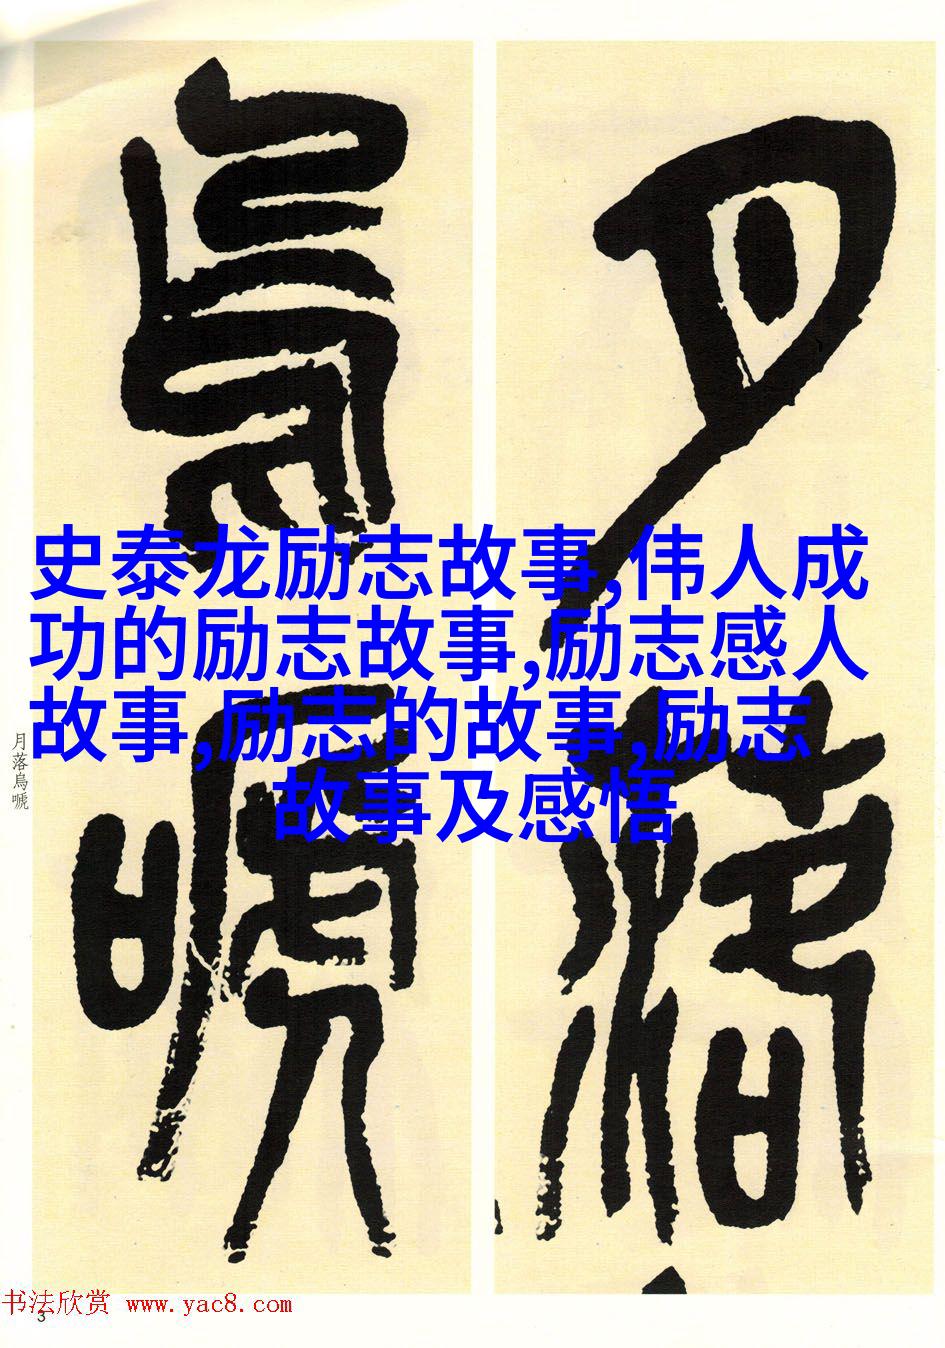 月落
烏嗁
史泰龙励志故事,伟人成
功的励志故事,励志感人
故事,励志的故事,励志
故事及感悟
月落烏嗁
书法欣赏 www.yac8.com
3